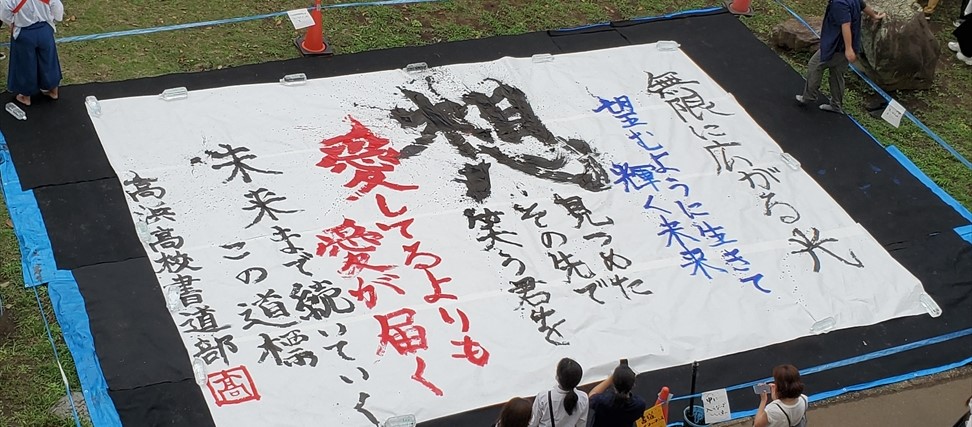 無限に広がる光
望むように生きて
輝く未来
想
見つめた
その先で
笑う君を
愛してるよりも
愛が届く
未来まで続いていく
この道標
高浜高校書道部
高